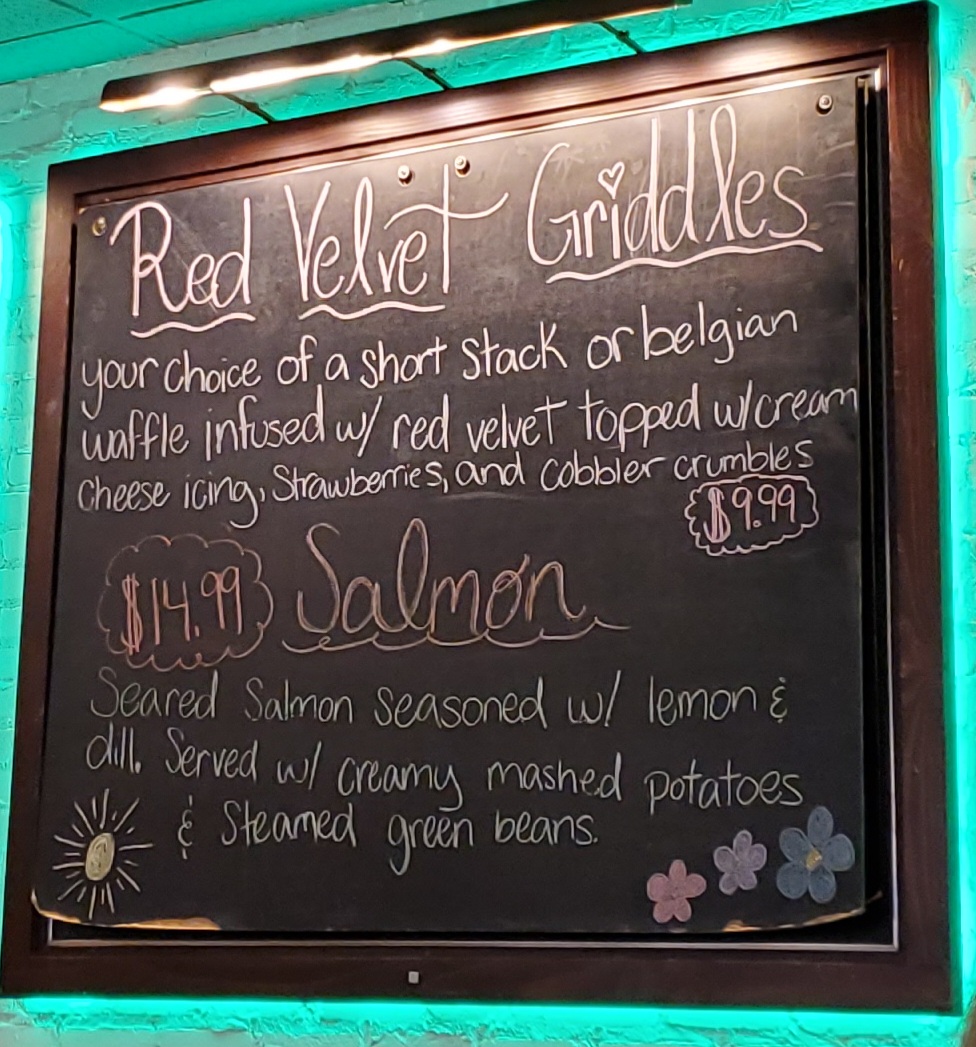 Red Velvet Griddles
your choice of a short stack or belgian
waffle infused w/ red velvet topped w/cream
cheese icing, strawberries, and cobbler crumbles
$9.99
$14.99 Salmon
Seared Salmon seasoned w/ lemon &
dill. Served w/ creamy mashed potatoes
& Steamed green beans.